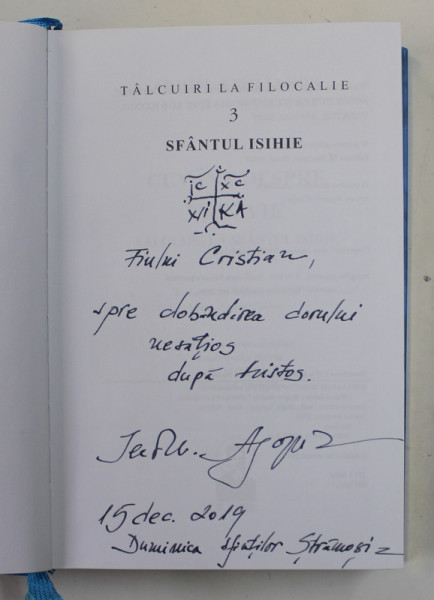 TÂLCUIRI LA FILOCALIE
3
SFÂNTUL ISIHIE
IC XC
NI KA
Fiului Cristian,
spre dobândirea dorului
nesățios
după Hristos.
Agapie
15 dec. 2019
Duminica Sfinților Strămoși